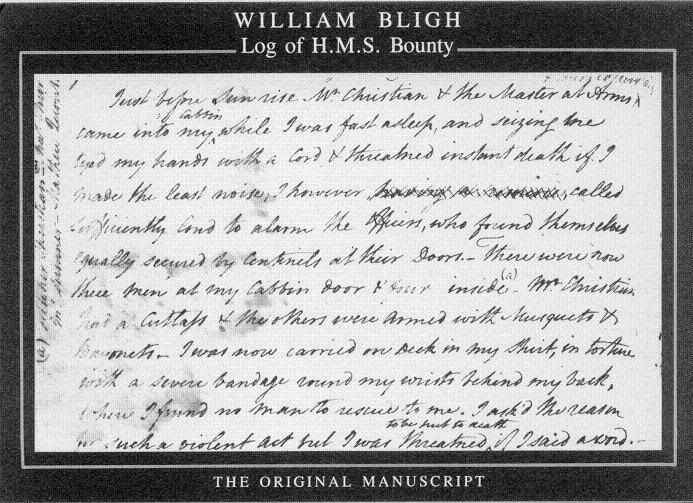 WILLIAM BLIGH
Log of H.M.S. Bounty
Just before Sun rise Mr Christian & the Master at Arms
Cabbin
came into my while I was fast asleep, and seizing me
tyed my hands with a Cord & threatned instant death if I
made the least noise, I however having a called
sufficiently loud to alarm the Officers, who found themselves
equally secured by Centinels at their Doors. – There were now
three men at my Cabbin door & four inside (a) – Mr Christian
had a Cutlass & the others were armed with Musquets &
Bayonets – I was now carried on Deck in my Shirt, in torture
with a severe bandage round my wrists behind my back,
where I found no man to rescue to me. I ask'd the reason
to be put to death
for such a violent act but I was threatned if I said a word. –
(a) Christian,
Sumner – Mathew Quintal.
THE ORIGINAL MANUSCRIPT